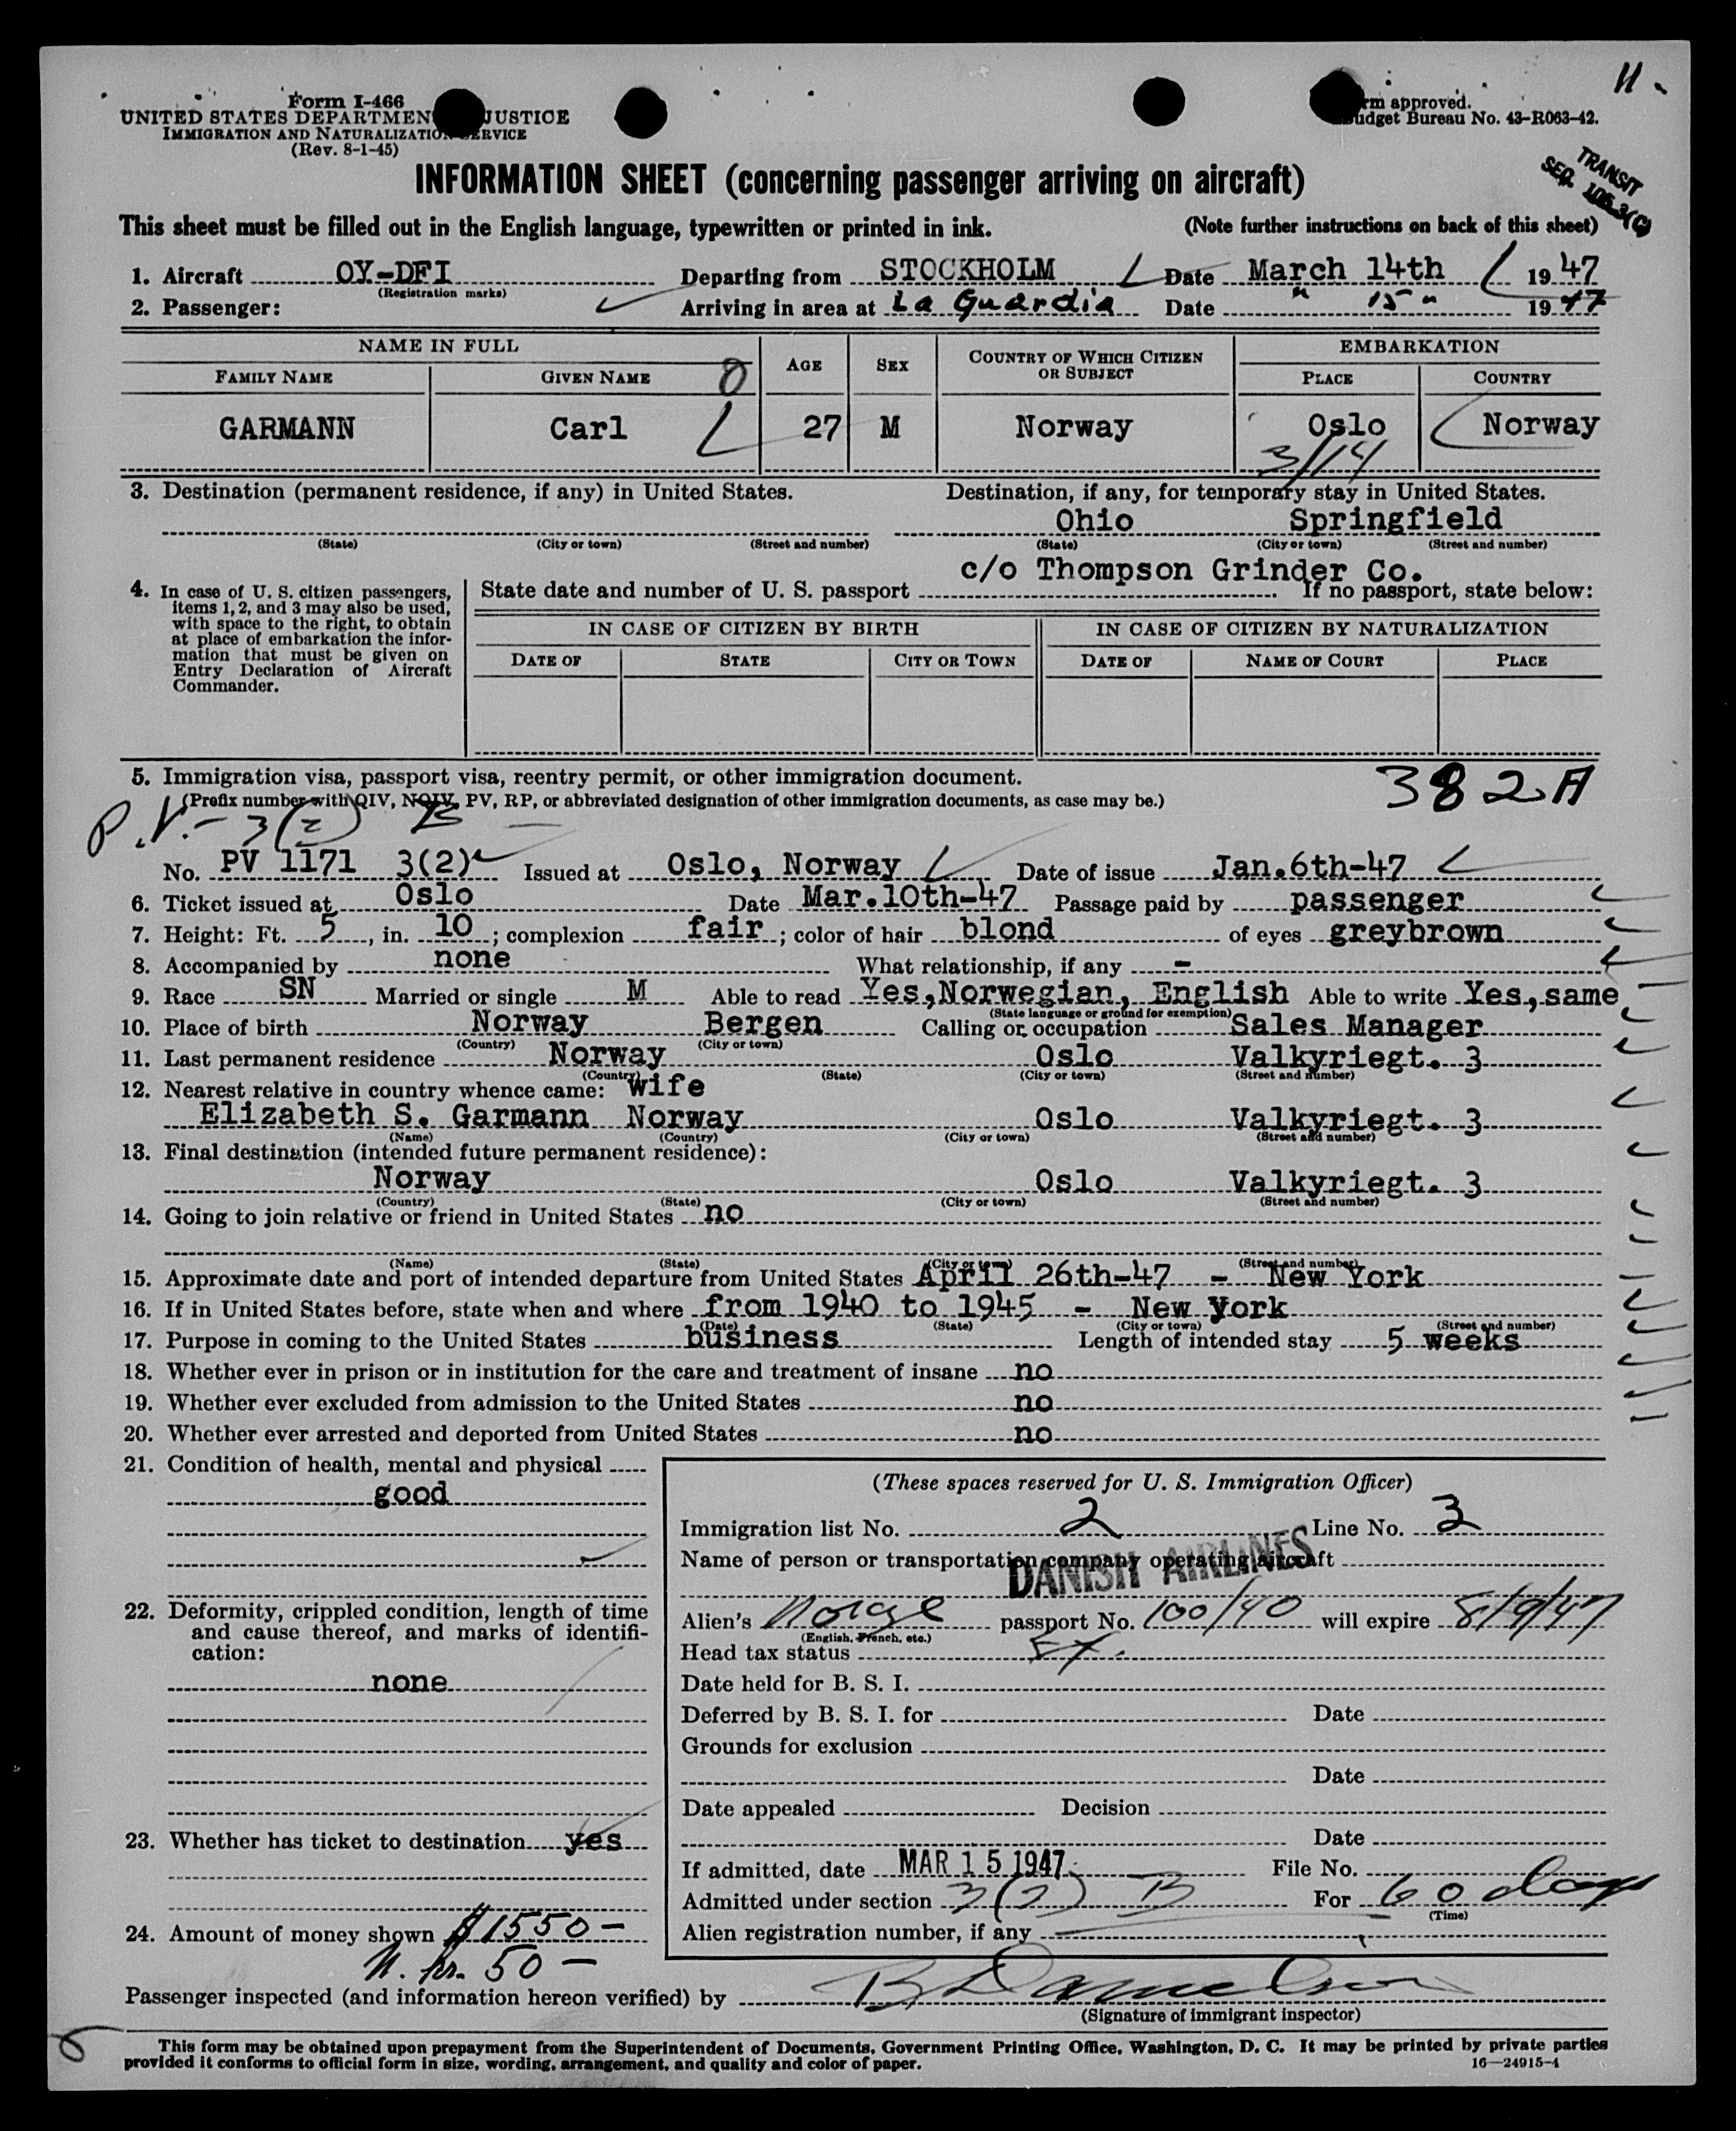 11-
Form I-466
UNITED STATES DEPARTMENT JUSTICE
IMMIGRATION AND NATURALIZATION SERVICE
(Rev. 8-1-45)
approved.
Budget Bureau No. 43-R063-42.
TRANSIT
SEQ.
INFORMATION SHEET (concerning passenger arriving on aircraft)
This sheet must be filled out in the English language, typewritten or printed in ink. (Note further instructions on back of this sheet)
1. Aircraft OY-DFI Departing from STOCKHOLM Date March 14th 1947
(Registration marks)
2. Passenger: Arriving in area at La Guardia Date " 15 " 1947
NAME IN FULL AGE SEX COUNTRY OF WHICH CITIZEN OR SUBJECT EMBARKATION
FAMILY NAME GIVEN NAME PLACE COUNTRY
GARMANN Carl 27 M Norway Oslo Norway
3/14
3. Destination (permanent residence, if any) in United States. Destination, if any, for temporary stay in United States.
Ohio Springfield
(State) (City or town) (Street and number) (State) (City or town) (Street and number)
c/o Thompson Grinder Co.
4. In case of U. S. citizen passengers, items 1, 2, and 3 may also be used, with space to the right, to obtain at place of embarkation the information that must be given on Entry Declaration of Aircraft Commander.
State date and number of U. S. passport . If no passport, state below:
IN CASE OF CITIZEN BY BIRTH IN CASE OF CITIZEN BY NATURALIZATION
DATE OF STATE CITY OR TOWN DATE OF NAME OF COURT PLACE
5. Immigration visa, passport visa, reentry permit, or other immigration document. 382A
(Prefix number with QIV, NQIV, PV, RP, or abbreviated designation of other immigration documents, as case may be.)
P.V.- 3(2) B
No. PV 1171 3(2) Issued at Oslo, Norway Date of issue Jan.6th-47
6. Ticket issued at Oslo Date Mar.10th-47 Passage paid by passenger
7. Height: Ft. 5, in. 10; complexion fair; color of hair blond of eyes greybrown
8. Accompanied by none What relationship, if any -
9. Race SN Married or single M Able to read Yes,Norwegian, English Able to write Yes,same
(State language or ground for exemption)
10. Place of birth Norway Bergen Calling or occupation Sales Manager
(Country) (City or town)
11. Last permanent residence Norway Oslo Valkyriegt. 3
(Country) (State) (City or town) (Street and number)
12. Nearest relative in country whence came: wife
Elizabeth S. Garmann Norway Oslo Valkyriegt. 3
(Name) (Country) (City or town) (Street and number)
13. Final destination (intended future permanent residence):
Norway Oslo Valkyriegt. 3
(Country) (State) (City or town) (Street and number)
14. Going to join relative or friend in United States no
(Name) (State) (City or town) (Street and number)
15. Approximate date and port of intended departure from United States April 26th-47 - New York
16. If in United States before, state when and where from 1940 to 1945 - New York
(Date) (State) (City or town) (Street and number)
17. Purpose in coming to the United States business Length of intended stay 5 weeks
18. Whether ever in prison or in institution for the care and treatment of insane no
19. Whether ever excluded from admission to the United States no
20. Whether ever arrested and deported from United States no
21. Condition of health, mental and physical
good
22. Deformity, crippled condition, length of time
and cause thereof, and marks of identifi-
cation:
none
23. Whether has ticket to destination yes
24. Amount of money shown $1550-
N. kr. 50-
(These spaces reserved for U. S. Immigration Officer)
Immigration list No. 2 Line No. 3
Name of person or transportation company operating aircraft
DANISH AIRLINES
Alien's Norge passport No. 100/40 will expire 8/9/47
(English, French, etc.)
Head tax status Ex.
Date held for B. S. I.
Deferred by B. S. I. for Date
Grounds for exclusion
Date
Date appealed Decision
Date
If admitted, date MAR 15 1947 File No.
Admitted under section 3(2) B For 60 days
(Time)
Alien registration number, if any
Passenger inspected (and information hereon verified) by
(Signature of immigrant inspector)
6
This form may be obtained upon prepayment from the Superintendent of Documents, Government Printing Office, Washington, D. C. It may be printed by private parties
provided it conforms to official form in size, wording, arrangement, and quality and color of paper. 16—24915-4